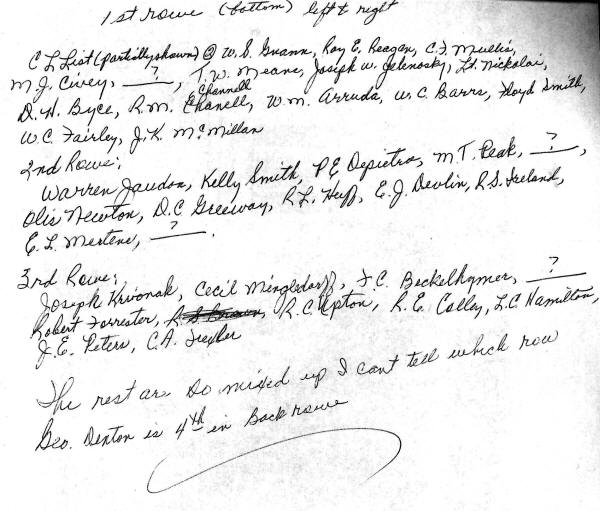 1st rowe (bottom) left & right
C L List (partially shown) @ W. S. Guann, Roy E. Reagan, C. F. Mullis,
M. J. Civey, ?, T. W. Means, Joseph W. Jelenosky, Lt. Nickolai,
Channell
D. H. Byce, R. M. Chanell, W. M. Arruda, W. C. Barrs, Floyd Smith,
W. C. Fairley, J. K. McMillan
2nd Rowe;
Warren Jaudon, Kelly Smith, P E Depietro, M. T. Peak, ?,
Olis Newton, D. C Greeway, R. L. Huff, E. J. Devlin, R. S. Ireland,
E. L. Mertens, ?.
3rd Rowe;
Joseph Krivonak, Cecil Mingledorff, F. C. Beckelhymer, ?
Robert Forrester, R. C Upton, R. E. Colley, L. C Hamilton,
J. E. Peters, C. A. Trexler
The rest are so mixed up I cant tell which row
Geo. Denton is 4th in Back rowe